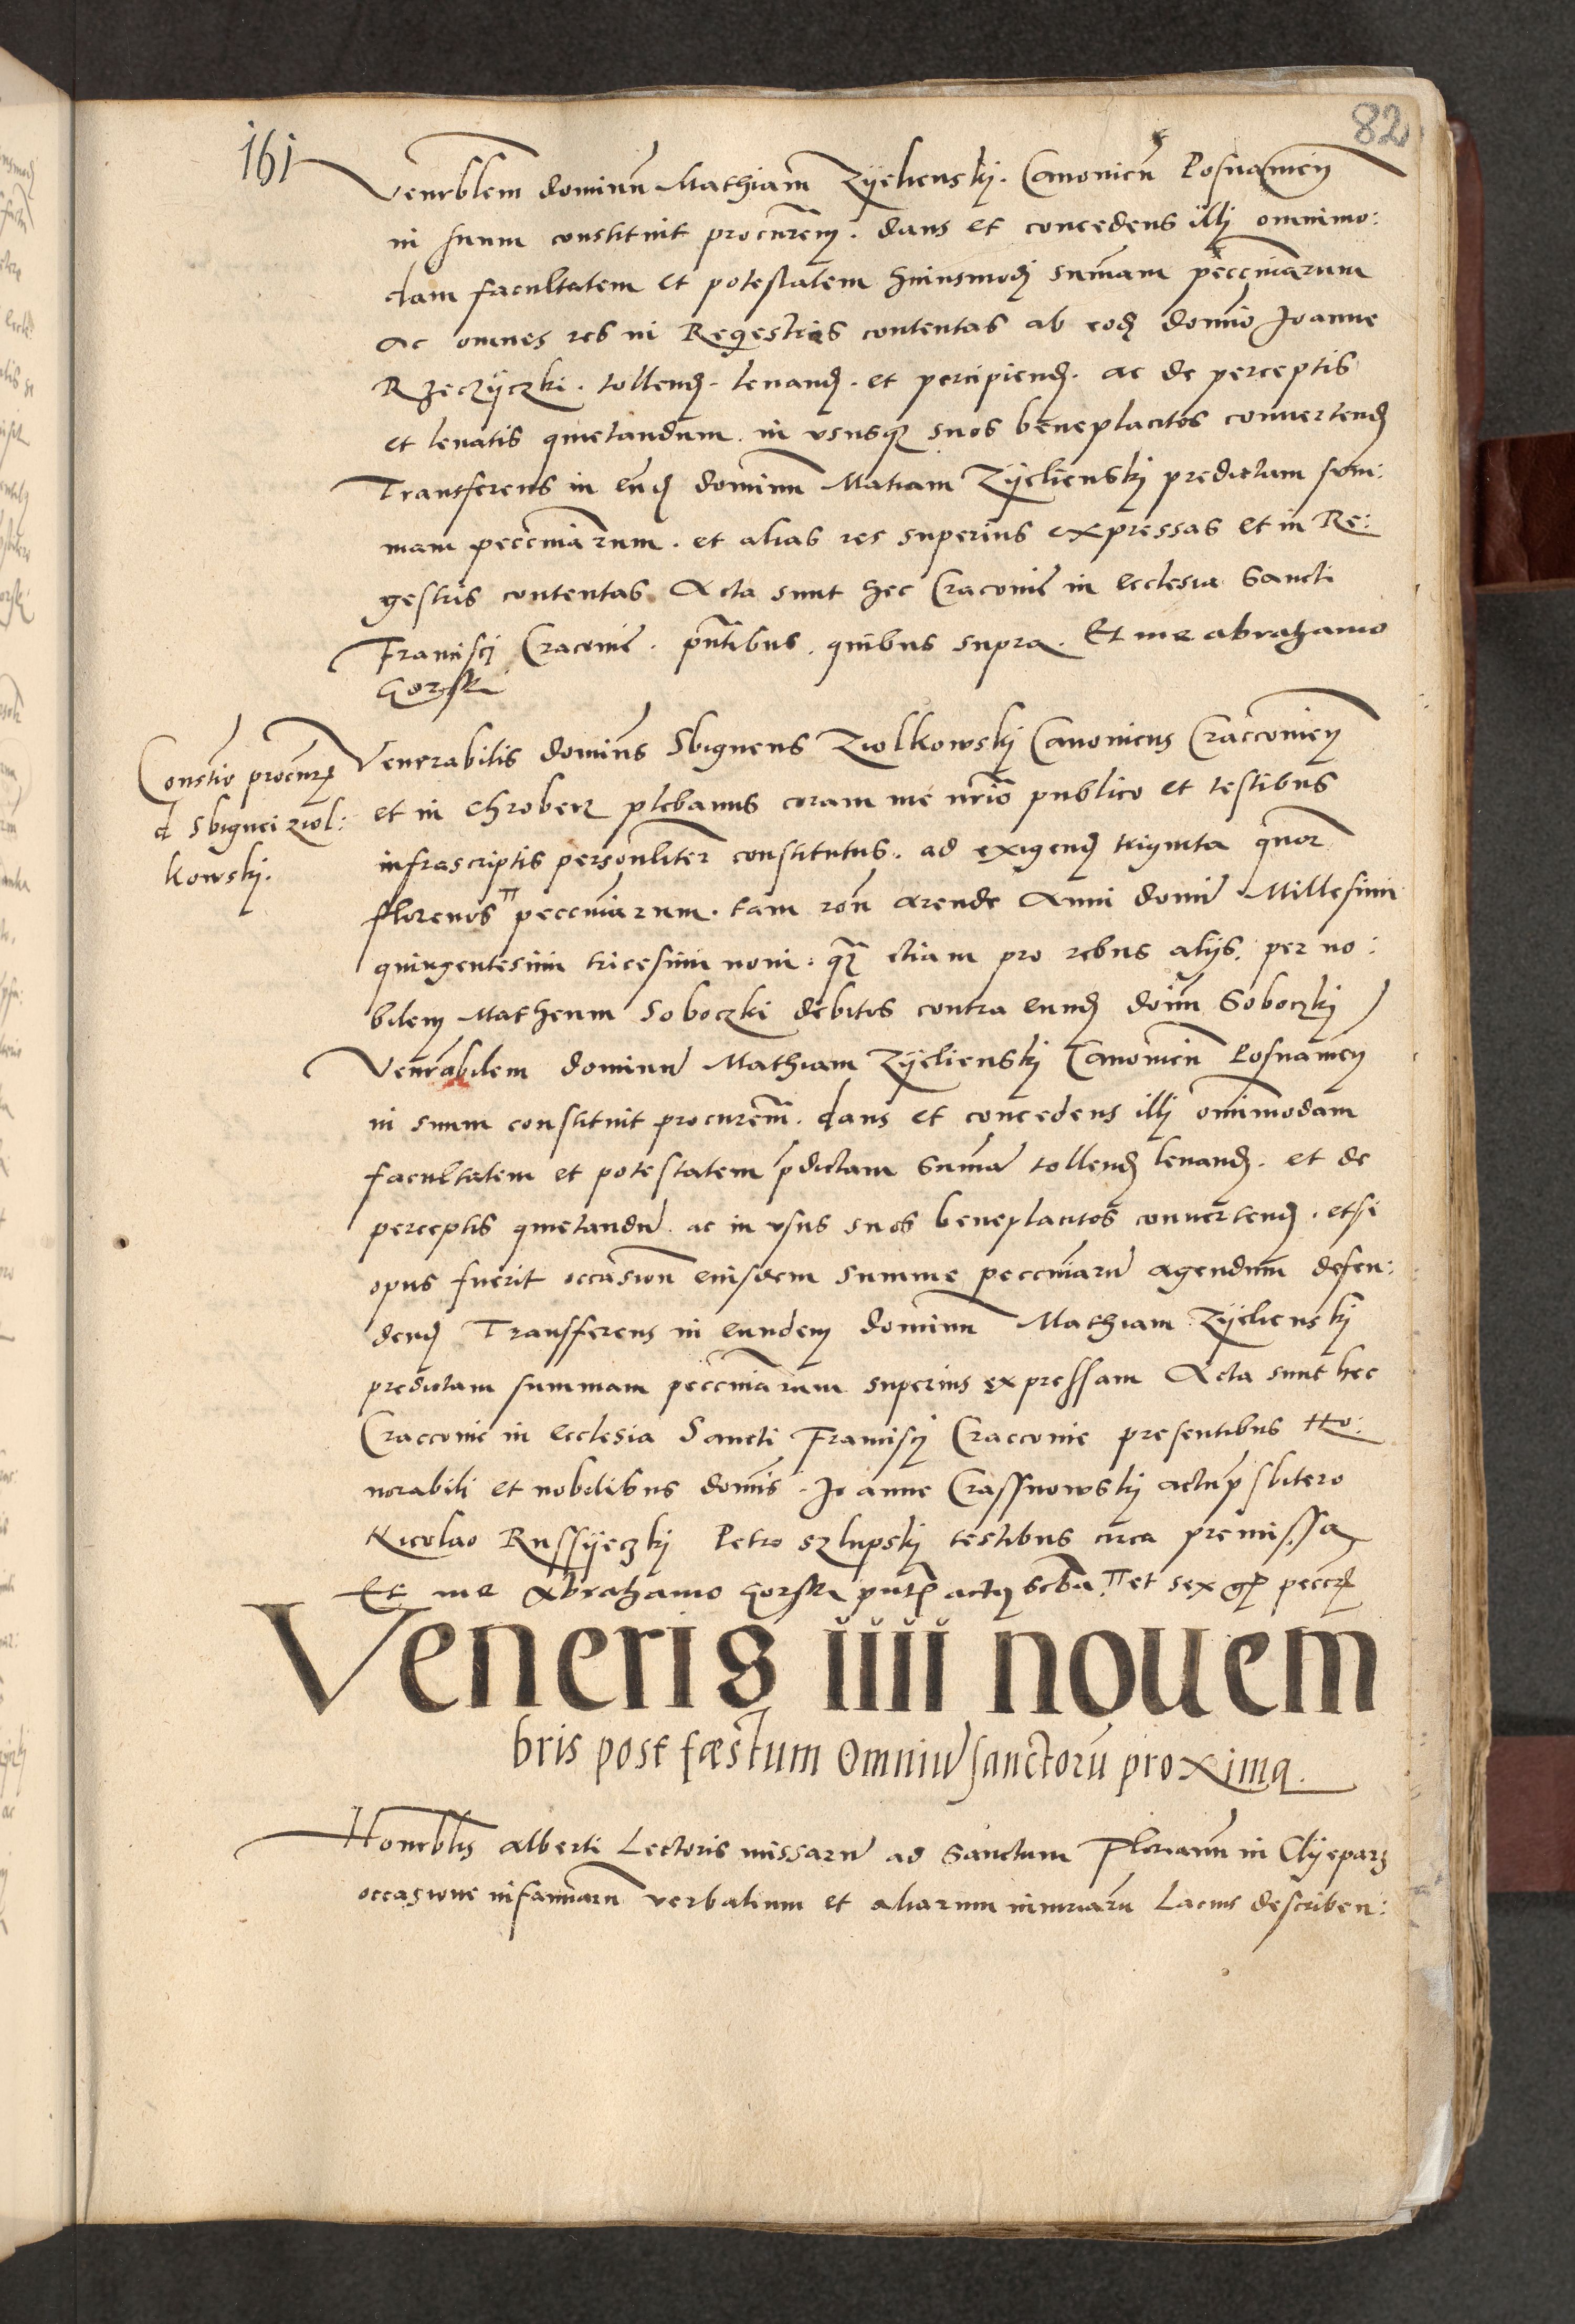 82
161
Venrblem dominũ Mathiam Zÿelienskÿ. Canonicũ Posnamen̄
in suum constituit procurem̄. dans et concedens illj omnimo:
dam facultatem et potestatem huiusmodj sum̄am peccuniarum
ac omnes res in Regestris contentas ab eod dom̄io Joanne
Rzeczÿczki. tollend. leuand. et percipiend. ac de perceptis
et leuatis quietandum. in vsusqz suos beneplacitos conuertend
Transferens in eund dominũ Matiam Zÿelienskÿ predictam sum:
mam peccuniarum. et alias res superius expressas et in Re:
gestris contentas. Acta sunt hec Cracouie in ecclesia Sancti
Francisci Cracouie. pñtibus. quibus supra. Et me abrahamo
Gorski
Constio procurz
d Sbignei ziol:
kowskj.
Venerabilis dominus Sbigneus Ziolkowskj Canonicus Craccouien̄
et in Chroberz plebanus coram me nrio publico et testibus
infrascriptis personliter constitutus. ad exigend triginta quor
florenos π peccuniarum. tam ron̄ arende Anni domī Millesimi
quingentesimi tricesimi noni. qz etiam pro rebus alijs. per no:
bilem Matheum Soboczki debitos contra eund dom̄ Soboczkj
Venerabilem dominũ Mathiam Zÿelienskj Canonicũ Posnamen̄
in suum constituit procurem̄. dans et concedens illj omimodam
facultatem et potestatem p̄dictam sum̄ā tollend leuand. et de
perceptis quietandũ. ac in vsus suos beneplacitos conuertend. etsi
opus fuerit occasion̄ eiusdem summe peccuniarũ agendum defen:
dend Transfferens in eundem dominũ Mathiam Zÿelienskj
predictam summam peccuniarum superius expressam Acta sunt hec
Craccouie in ecclesia Sancti Francisci Craccouie presentibus Ho:
norabili et nobilibus dom̄is. Joanne Crassnowskj actu p̄sbitero
Nicolao Russÿeczkj Petro szlupskj testibus circa premissa
Et me Abrahamo Gorski pñte actoz scba. π et sex gr peccrz
Veneris iiii nouem
bris post fæstum Omniũ sanctorũ proxima.
Honrblis alberti Lectoris missarũ ad Sanctum Florianũ in Clÿeparz
occasione infamiarũ verbalium et aliarum iniuriarũ Lacius describen: